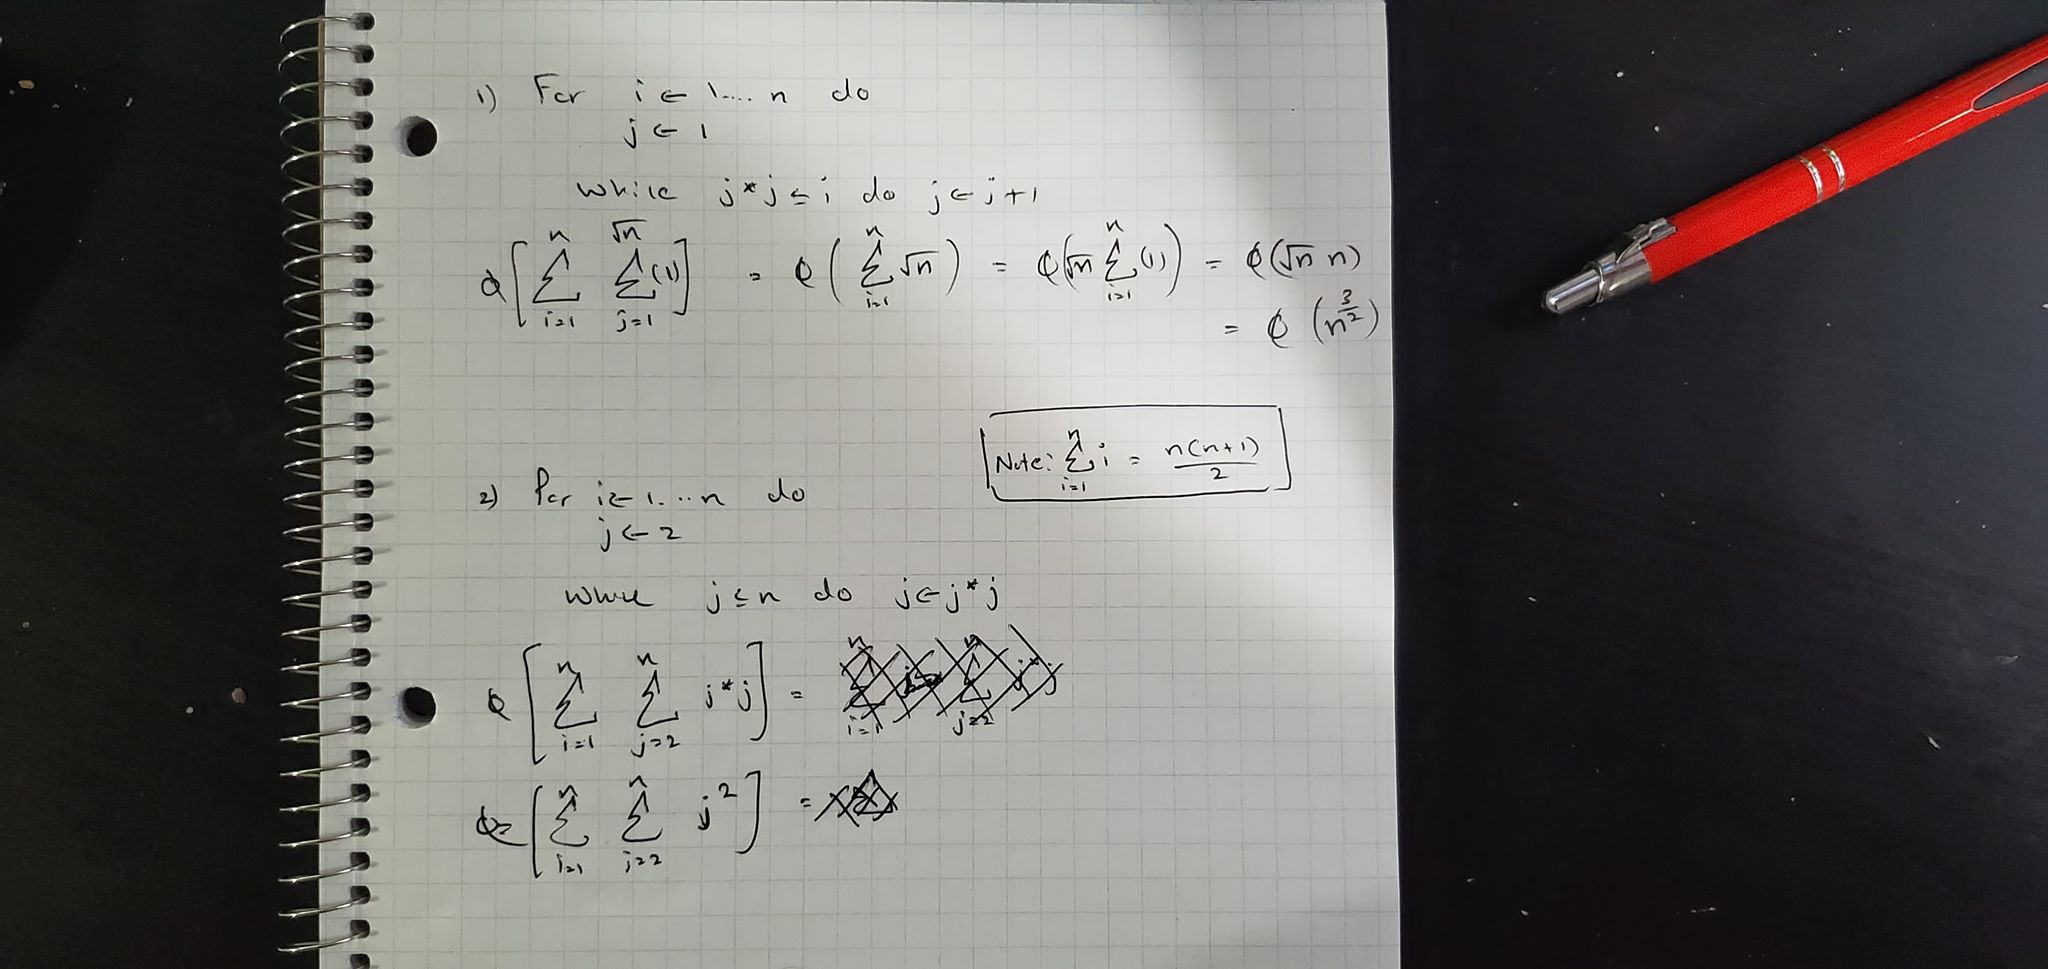 1) For i ← 1.... n do
j ← 1
while j*j ≤ i do j ← j+1
Θ[∑_{i=1}^{n} ∑_{j=1}^{√n} (1)] = Θ(∑_{i=1}^{n} √n) = Θ(√n ∑_{i=1}^{n} (1)) = Θ(√n n)
= Θ(n^{3/2})
Note: ∑_{i=1}^{n} i = n(n+1)/2
2) For i ← 1....n do
j ← 2
while j ≤ n do j ← j*j
Θ[∑_{i=1}^{n} ∑_{j=2}^{n} j*j] =
Θ=[∑_{i=1}^{n} ∑_{j=2}^{n} j^2] =